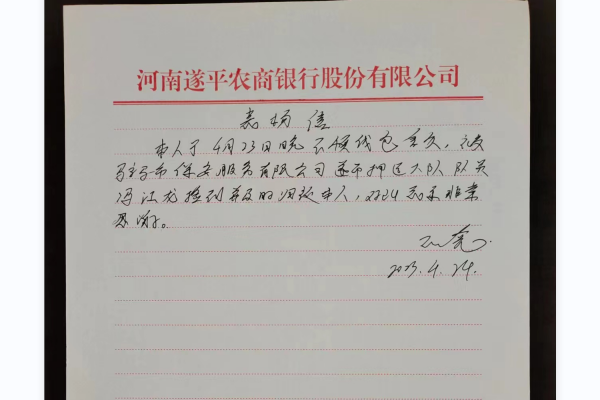 河南遂平农商银行股份有限公司
表扬信
本人于4月23日晚不慎钱包丢失,被
驻马店市保安服务有限公司遂平押运大队队员
冯江龙捡到并及时归还本人,对此表示非常
感谢。
2023.4.24.